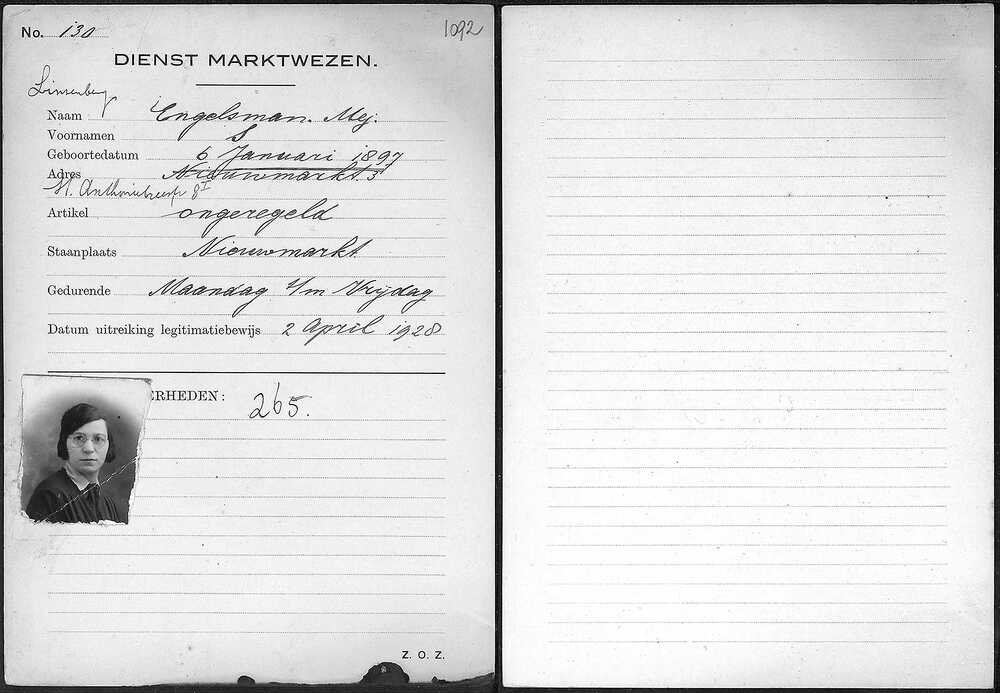 No. 130
1092
DIENST MARKTWEZEN.
Naam Engelsman. Mej.
Voornamen S
Geboortedatum 6 Januari 1897
Adres Nieuwmarkt. 5
St. Anthoniebreestr 8 I
Artikel ongeregeld
Staanplaats Nieuwmarkt.
Gedurende Maandag t/m Vrijdag
Datum uitreiking legitimatiebewijs 2 April 1928
ERHEDEN: 265.
Z. O. Z.